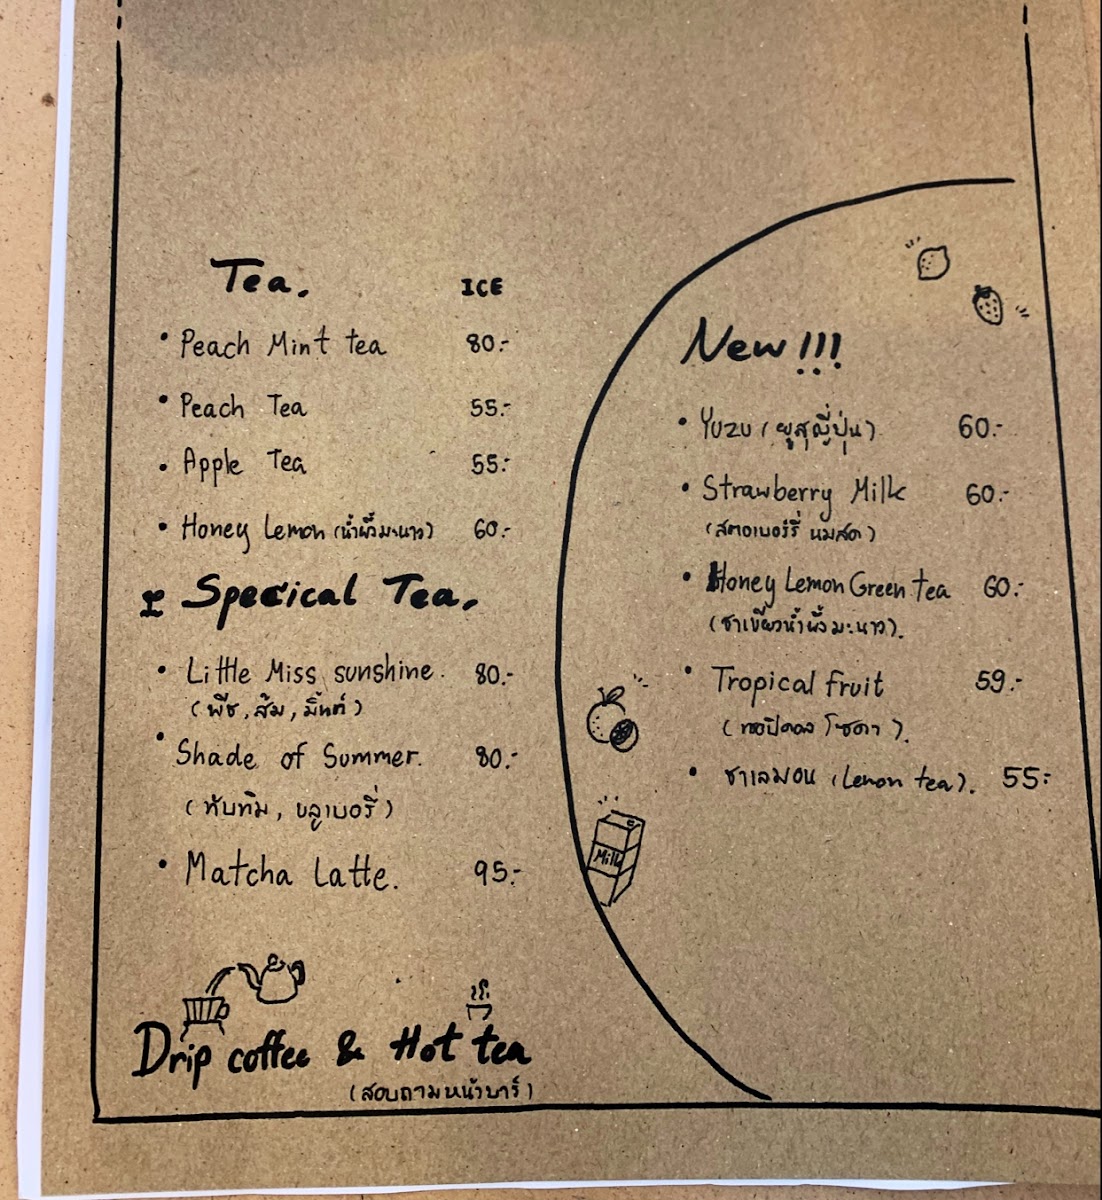 Tea. ICE
• Peach Mint tea 80.-
• Peach Tea 55.-
• Apple Tea 55.-
• Honey Lemon (น้ำผึ้งมะนาว) 60.-
Specical Tea.
• Little Miss sunshine. 80.-
(พีช, ส้ม, มิ้นต์)
• Shade of Summer. 80.-
(ทับทิม, บลูเบอรี่)
• Matcha Latte. 95.-
Drip coffee & Hot tea
(สอบถามหน้าบาร์)
New!!!
• Yuzu (ยูสุญี่ปุ่น) 60.-
• Strawberry Milk 60.-
(สตอเบอร์รี่ นมสด)
• Honey Lemon Green tea 60.-
(ชาเขียวน้ำผึ้งมะนาว).
• Tropical fruit 59.-
(ทอปิคอล โซดา).
• ชาเลมอน (Lemon tea). 55.-
Milk